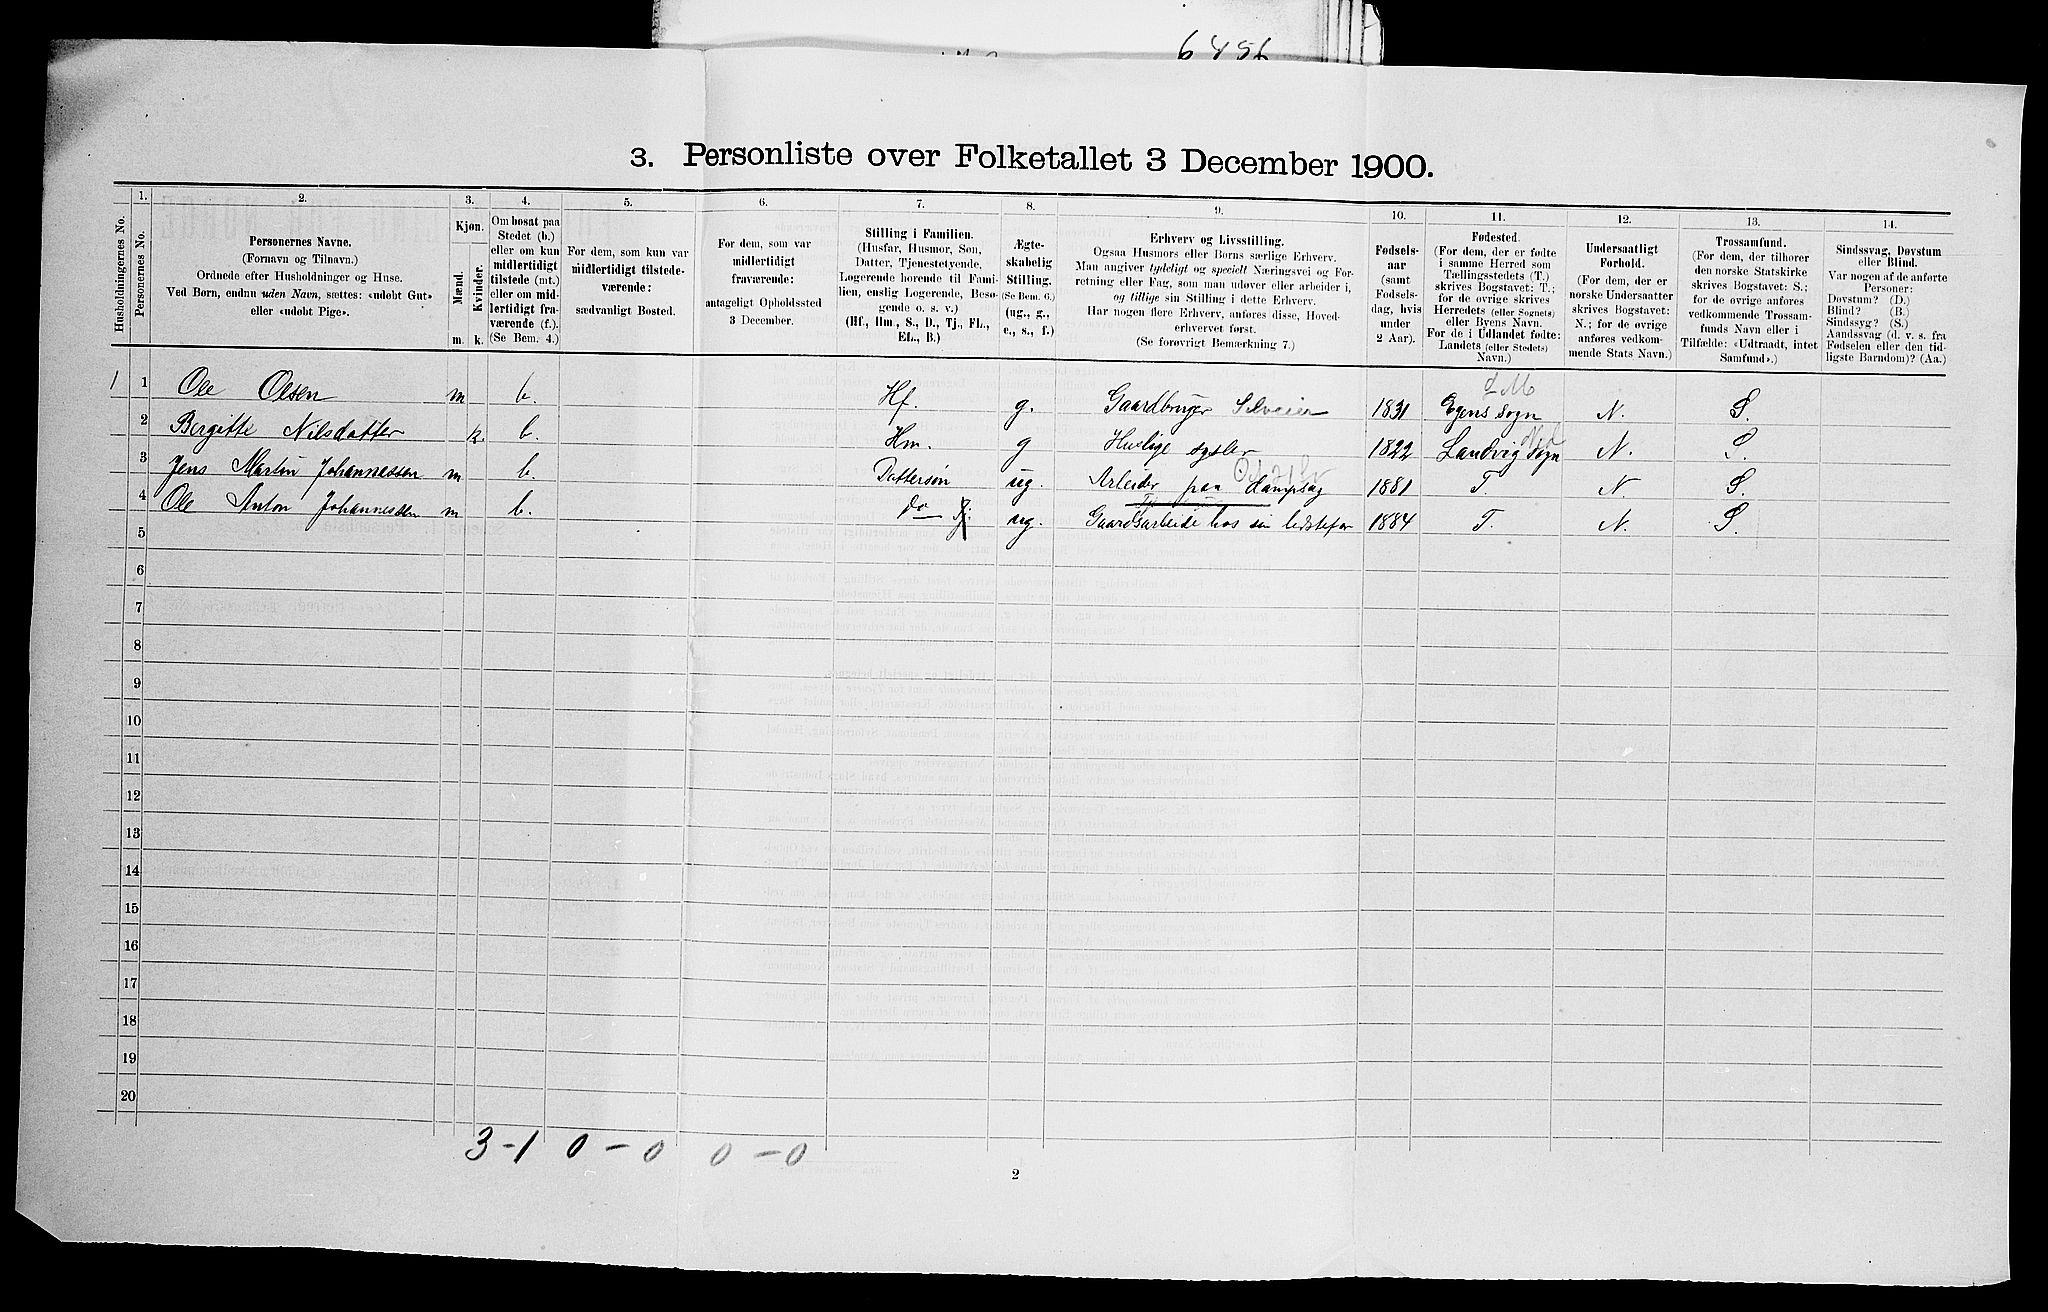 6486
3. Personliste over Folketallet 3 December 1900.
Husholdningernes No.
1.
Personernes No.
2.
Personernes Navne.
(Fornavn og Tilnavn.)
Ordnede efter Husholdninger og Huse.
Ved Børn, endnu uden Navn, sættes: «udøbt Gut»
eller «udøbt Pige».
3.
Kjøn.
Mænd.
Kvinder.
m. k.
4.
Om bosat paa
Stedet (b.)
eller om kun
midlertidigt
tilstede (mt.)
eller om mid-
lertidigt fra-
værende (f.).
(Se Bem. 4.)
5.
For dem, som kun var
midlertidigt tilstede-
værende:
sædvanligt Bosted.
6.
For dem, som var
midlertidigt
fraværende:
antageligt Opholdssted
3 December.
7.
Stilling i Familien.
(Husfar, Husmor, Søn,
Datter, Tjenestetyende,
Logerende hørende til Fami-
lien, enslig Logerende, Besø-
gende o. s. v.)
(Hf., Hm., S., D., Tj., FL.,
EL., B.)
8.
Ægte-
skabelig
Stilling.
(Se Bem. 6.)
(ug., g.,
e., s., f.)
9.
Erhverv og Livsstilling.
Ogsaa Husmors eller Børns særlige Erhverv.
Man angiver tydeligt og specielt Næringsvei og For-
retning eller Fag, som man udøver eller arbeider i,
og tillige sin Stilling i dette Erhverv.
Har nogen flere Erhverv, anføres disse, Hoved-
erhvervet først.
(Se forøvrigt Bemærkning 7.)
10.
Fødsels-
aar
(samt
Fødsels-
dag, hvis
under
2 Aar).
11.
Fødested.
(For dem, der er fødte
i samme Herred som
Tællingsstedets (T.)
skrives Bogstavet: T.;
for de øvrige skrives
Herredets (eller Sognets)
eller Byens Navn.
For de i Udlandet fødte:
Landets (eller Stedets)
Navn.)
12.
Undersaatligt
Forhold.
(For dem, der er
norske Undersaatter
skrives Bogstavet:
N.; for de øvrige
anføres vedkom-
mende Stats Navn.)
13.
Trossamfund.
(For dem, der tilhører
den norske Statskirke
skrives Bogstavet: S.;
for de øvrige anføres
vedkommende Trossam-
funds Navn eller i
Tilfælde: «Udtraadt, intet
Samfund».)
14.
Sindssvag, Døvstum
eller Blind.
Var nogen af de anførte
Personer:
Døvstum? (D.)
Blind? (B.)
Sindssyg? (S.)
Aandssvag (d. v. s. fra
Fødselen eller den tid-
ligste Barndom)? (Aa.)
1 1 Ole Olsen m b. Hf. g. Gaardbruger Selveier 1831 Egens sogn N. S.
2 Bergitte Nilsdatter k. b. Hm. g Huslige sysler 1822 Landvig sogn N. S.
3 Jens Martin Johannessen m b. Dattersøn ug. Arbeider paa Dampsag 1881 T. N. S.
4 Ole Anton Johannessen m b. do ug. Gaardsarbeide hos sin bedstefar 1884 T. N. S.
5
6
7
8
9
10
11
12
13
14
15
16
17
18
19
20
3-1 0-0 0-0
2